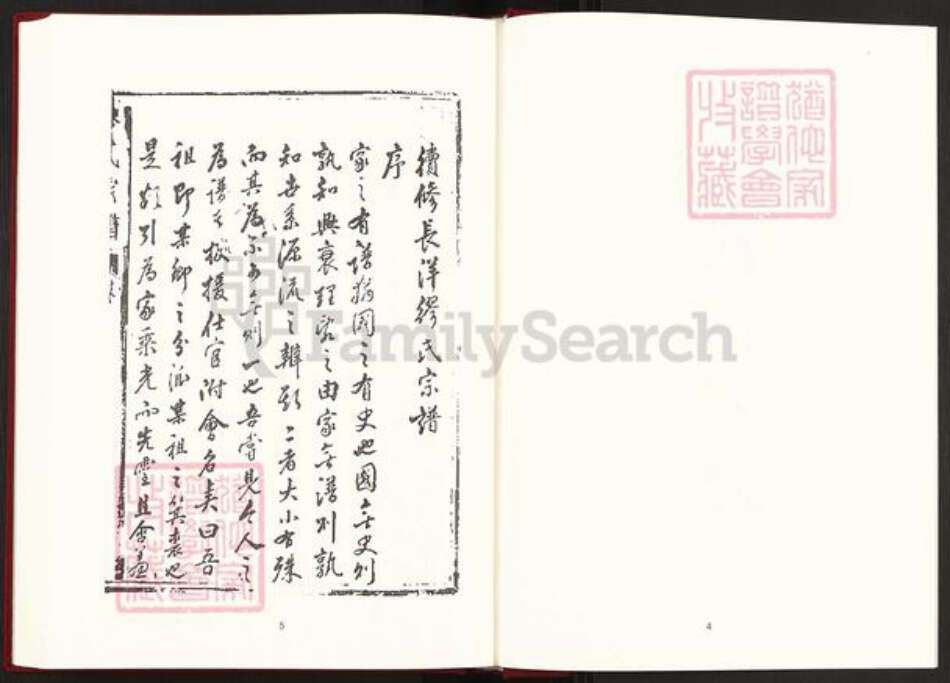 猶他家
譜學會
收藏
4
續修長洋繆氏宗譜
序
家之有譜猶國之有史也國無史則
孰知興衰理亂之由家無譜則孰
知世系源流之辯顧二者大小有殊
而其為不可無則一也吾嘗見今人之
為譜者攀援仕宦附會名美曰吾
祖即某鄉之分派某祖之箕裘也
是類引為家乘光而先靈且含羞
猶他家
譜學會
收藏
5
FamilySearch